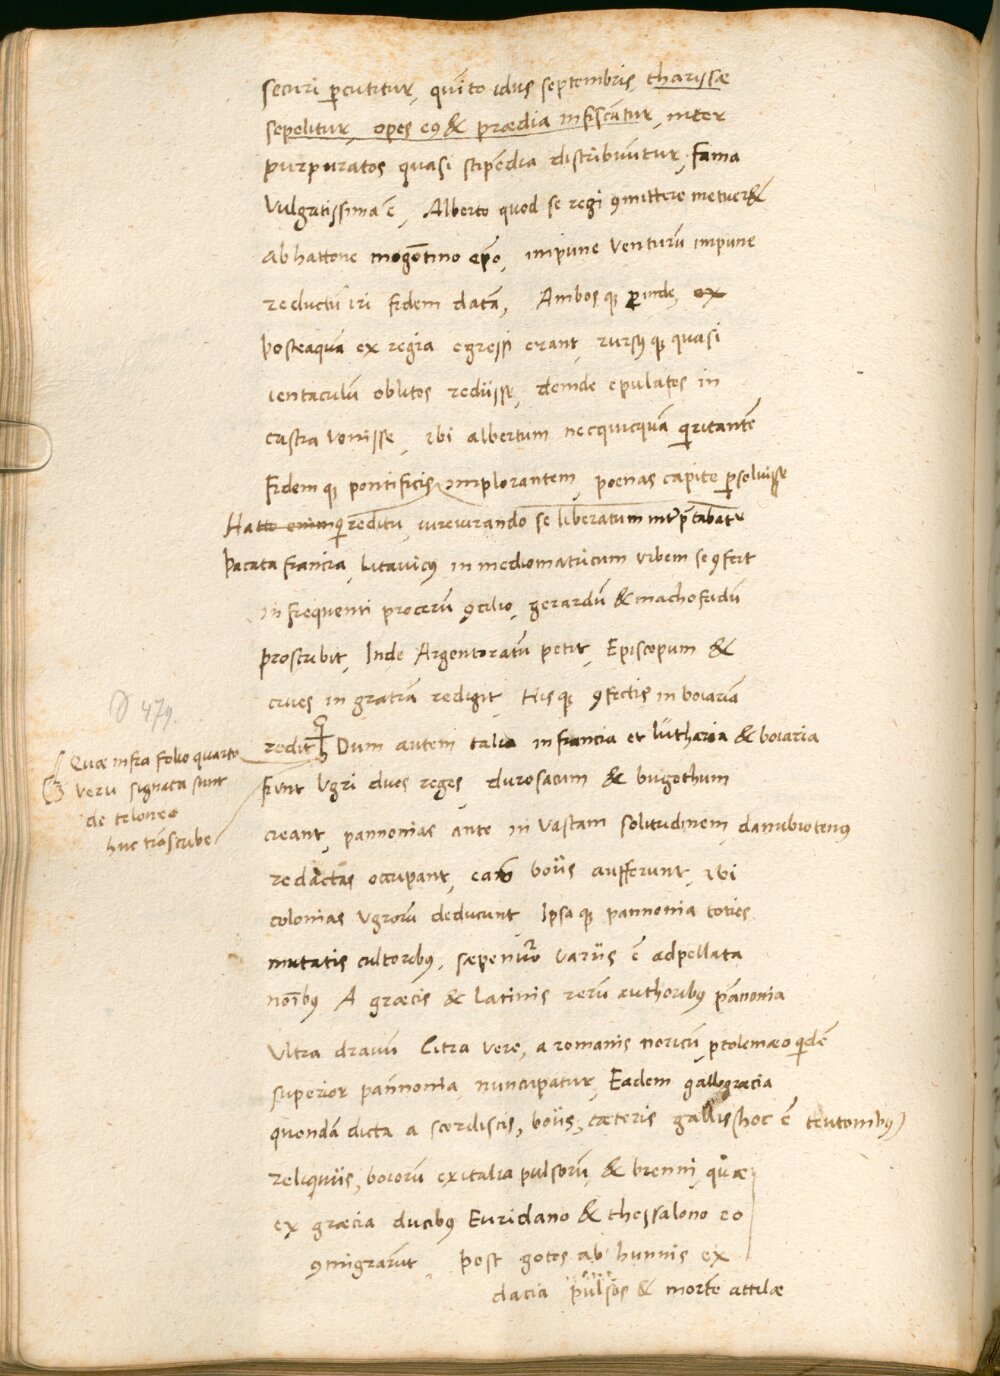 securi ꝑcutitur, quīto idus septembris, tharissæ
sepelitur, opes eꝰ & prædia infiscātur, inter
purpuratos quasi stipēdia distribuūtur, fama
vulgatissima ē, Alberto quod se regi ꝯmittere metueret
ab hattone mogōtino ep̄o, impune venturū impune
reductū iri fidem datā, Ambosqꝫ ꝑinde, ex
posteaquā ex regia egressi erant, rursusqꝫ quasi
ientaculū oblitos rediisse, deinde epulatos in
castra venisse, ibi albertum necquicquā quiritantē
fidemqꝫ pontificis implorantem, poenas capite ꝑsoluisse
Hatto enim reditu, iureiurando se liberatum interp̄tabatur
pacata francia, Litauicꝰ in mediomatricum urbem se ꝯfert
in frequenti procerū ꝯcilio, gerardū & machofridū
proscribit, Inde Argentoratū petit, Episcopum &
ciues in gratiā redigit Hisqꝫ ꝯfectis in boiariā
redit Dum autem talia in francia et lutharia & boiaria
fiunt Vgri duos reges durosacum & bugothum
creant, pannonias ante in vastam solitudinem, danubiotenꝰ
redactas occupant, boiis aufferunt, ibi
colonias Vgrorū deducunt Ipsaqꝫ pannonia toties
mutatis cultoribꝰ, sæpenumero variis ē adpellata
noībꝰ A græcis & latinis rerū authoribꝰ pānonia
Vltra drauū Citra vero, a romanis noricū, ptolemæo quidē
superior pānnonia nuncupatur, Eadem gallogræcia
quondā dicta a scordiscis, boiis, cæteris gallis (hoc ē teutonibꝰ)
reliquiis, boiorū ex italia pulsorū, & brenni, quæ
ex græcia ducibꝰ Euridano & thessalono eo
ꝯmigrarūt, post gotos ab hunnis ex
dacia pulsos & mortē attilæ
D 479.
Quæ infra folio quarto
veru signata sunt
de teloneo
huc trāscribe